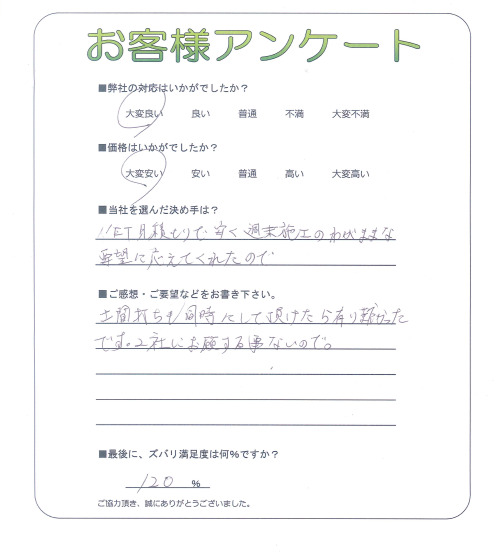 お客様アンケート
■弊社の対応はいかがでしたか？
大変良い 良い 普通 不満 大変不満
■価格はいかがでしたか？
大変安い 安い 普通 高い 大変高い
■当社を選んだ決め手は？
見積もりで、安く週末施工のわがままな
要望に応えてくれたので
■ご感想・ご要望などをお書き下さい。
土間打ちも同時にして頂けたら有り難かった
です。2社にお願する事ないので。
■最後に、ズバリ満足度は何％ですか？
120 ％
ご協力頂き、誠にありがとうございました。